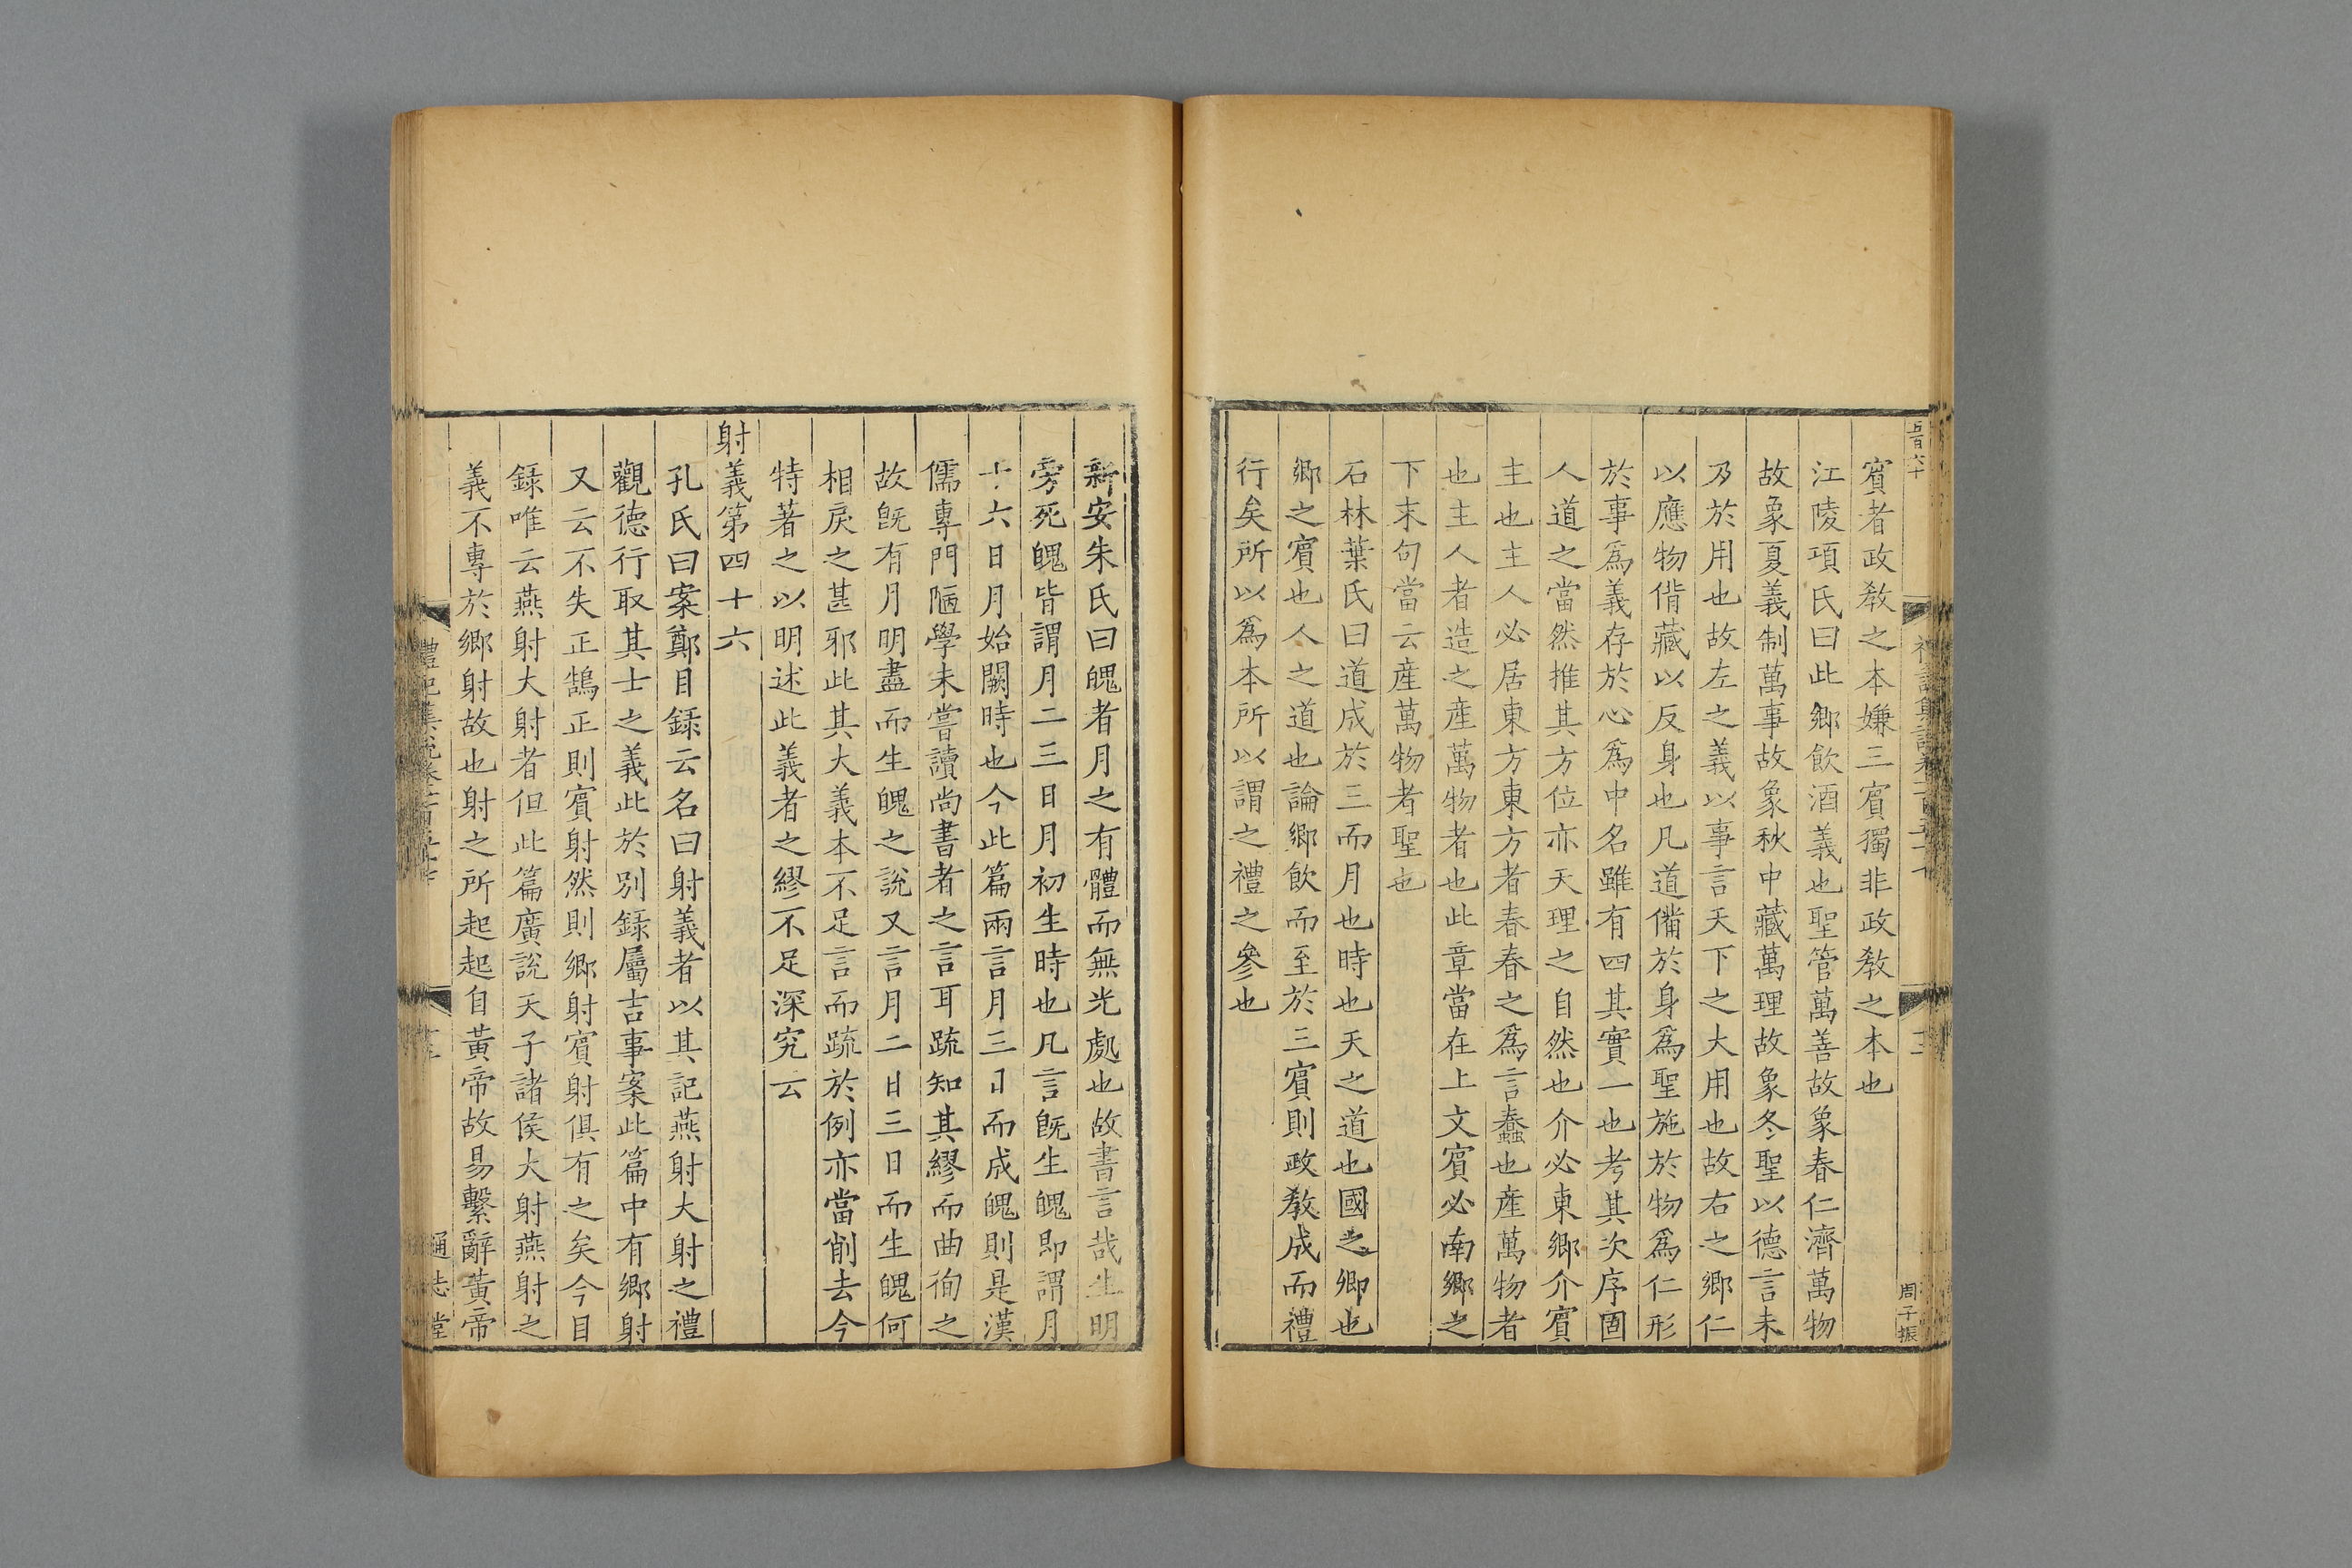 賔者政敎之本嫌三賔獨非政敎之本也
江陵項氏曰此鄉飲酒義也聖管萬善故象春仁濟萬物
故象夏義制萬事故象秋中藏萬理故象冬聖以德言未
及於用也故左之義以事言天下之大用也故右之鄉仁
以應物偝藏以反身也凡道備於身爲聖施於物爲仁形
於事爲義存於心爲中名雖有四其實一也考其次序固
人道之當然推其方位亦天理之自然也介必東鄉介賔
主也主人必居東方東方者春春之爲言蠢也產萬物者
也主人者造之產萬物者也此章當在上文賔必南鄉之
下末句當云產萬物者聖也
石林葉氏曰道成於三而月也時也天之道也國之卿也
鄉之賔也人之道也論鄉飲而至於三賔則政敎成而禮
行矣所以爲本所以謂之禮之參也
周子振
新安朱氏曰魄者月之有體而無光處也故書言哉生明
旁死魄皆謂月二三日月初生時也凡言旣生魄即謂月
十六日月始闕時也今此篇兩言月三日而成魄則是漢
儒專門陋學未嘗讀尚書者之言耳疏知其繆而曲徇之
故旣有月明盡而生魄之說又言月二日三日而生魄何
相戾之甚邪此其大義本不足言而疏於例亦當削去今
特著之以明述此義者之繆不足深究云
射義第四十六
孔氏曰案鄭目録云名曰射義者以其記燕射大射之禮
觀德行取其士之義此於别録屬吉事案此篇中有鄉射
又云不失正鵠正則賔射然則鄉射賔射俱有之矣今目
録唯云燕射大射者但此篇廣說天子諸侯大射燕射之
義不專於鄉射故也射之所起起自黃帝故易繫辭黃帝
通志堂